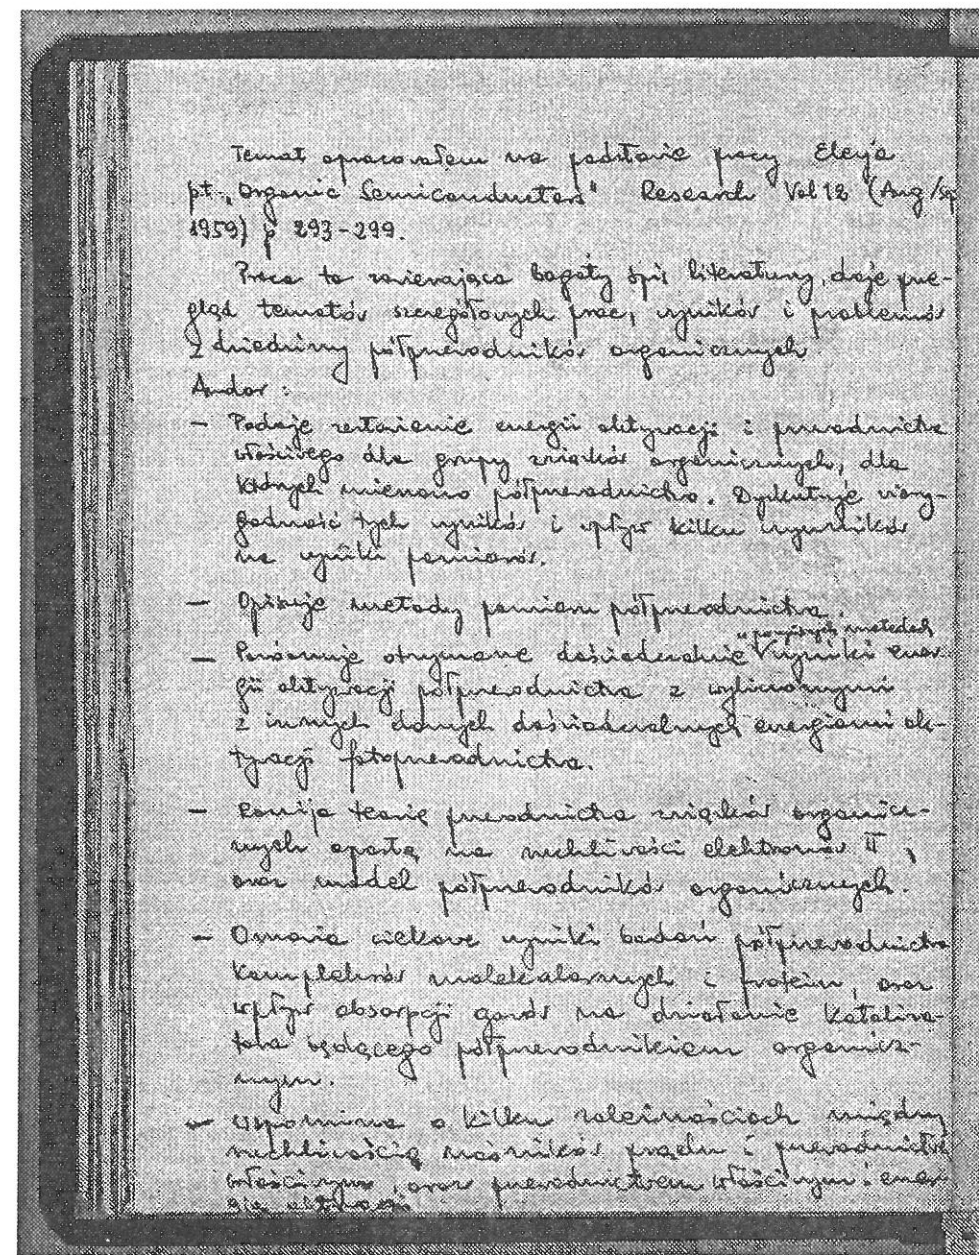 Temat opracowałem na podstawie pracy Eleya
pt. „Organic Semiconductors" Research Vol 12 (Aug/Sp
1959) p 293-299.
Praca ta zawierająca bogaty spis literatury, daje prze-
gląd tematów szczegółowych prac, wyników i problemów
z dziedziny półprzewodników organicznych.
Autor:
- Podaje zestawienie energii aktywacji i przewodnictwa
właściwego dla grupy związków organicznych, dla
których mierzono półprzewodnictwo. Dyskutuje wiary-
godność tych wyników i wpływ kilku czynników
na wyniki pomiarów.
- Opisuje metody pomiaru półprzewodnictwa.
w powyższych metodach
- Porównuje otrzymane doświadczalnie wyniki ener-
gii aktywacji półprzewodnictwa z wyliczonymi
z innych danych doświadczalnych energiami ak-
tywacji fotoprzewodnictwa.
- Rozwija teorię przewodnictwa związków organicz-
nych opartą na ruchliwości elektronów π,
oraz model półprzewodników organicznych.
- Omawia ciekawe wyniki badań półprzewodnictwa
kompleksów molekularnych i protein, oraz
wpływ absorpcji gazów na działanie kataliza-
tora będącego półprzewodnikiem organicz-
nym.
- Wspomina o kilku zależnościach między
ruchliwością nośników prądu i przewodnictwem
właściwym, oraz przewodnictwem właściwym i ener-
gią aktywacji